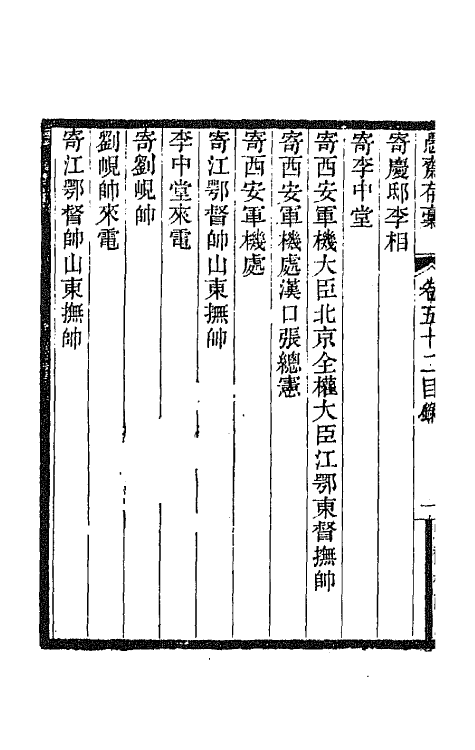 愚齋存稾 卷五十二目錄 一
寄慶邸李相
寄李中堂
寄西安軍機大臣北京全權大臣江鄂東督撫帥
寄西安軍機處漢口張總憲
寄西安軍機處
寄江鄂督帥山東撫帥
李中堂來電
寄劉峴帥
劉峴帥來電
寄江鄂督帥山東撫帥